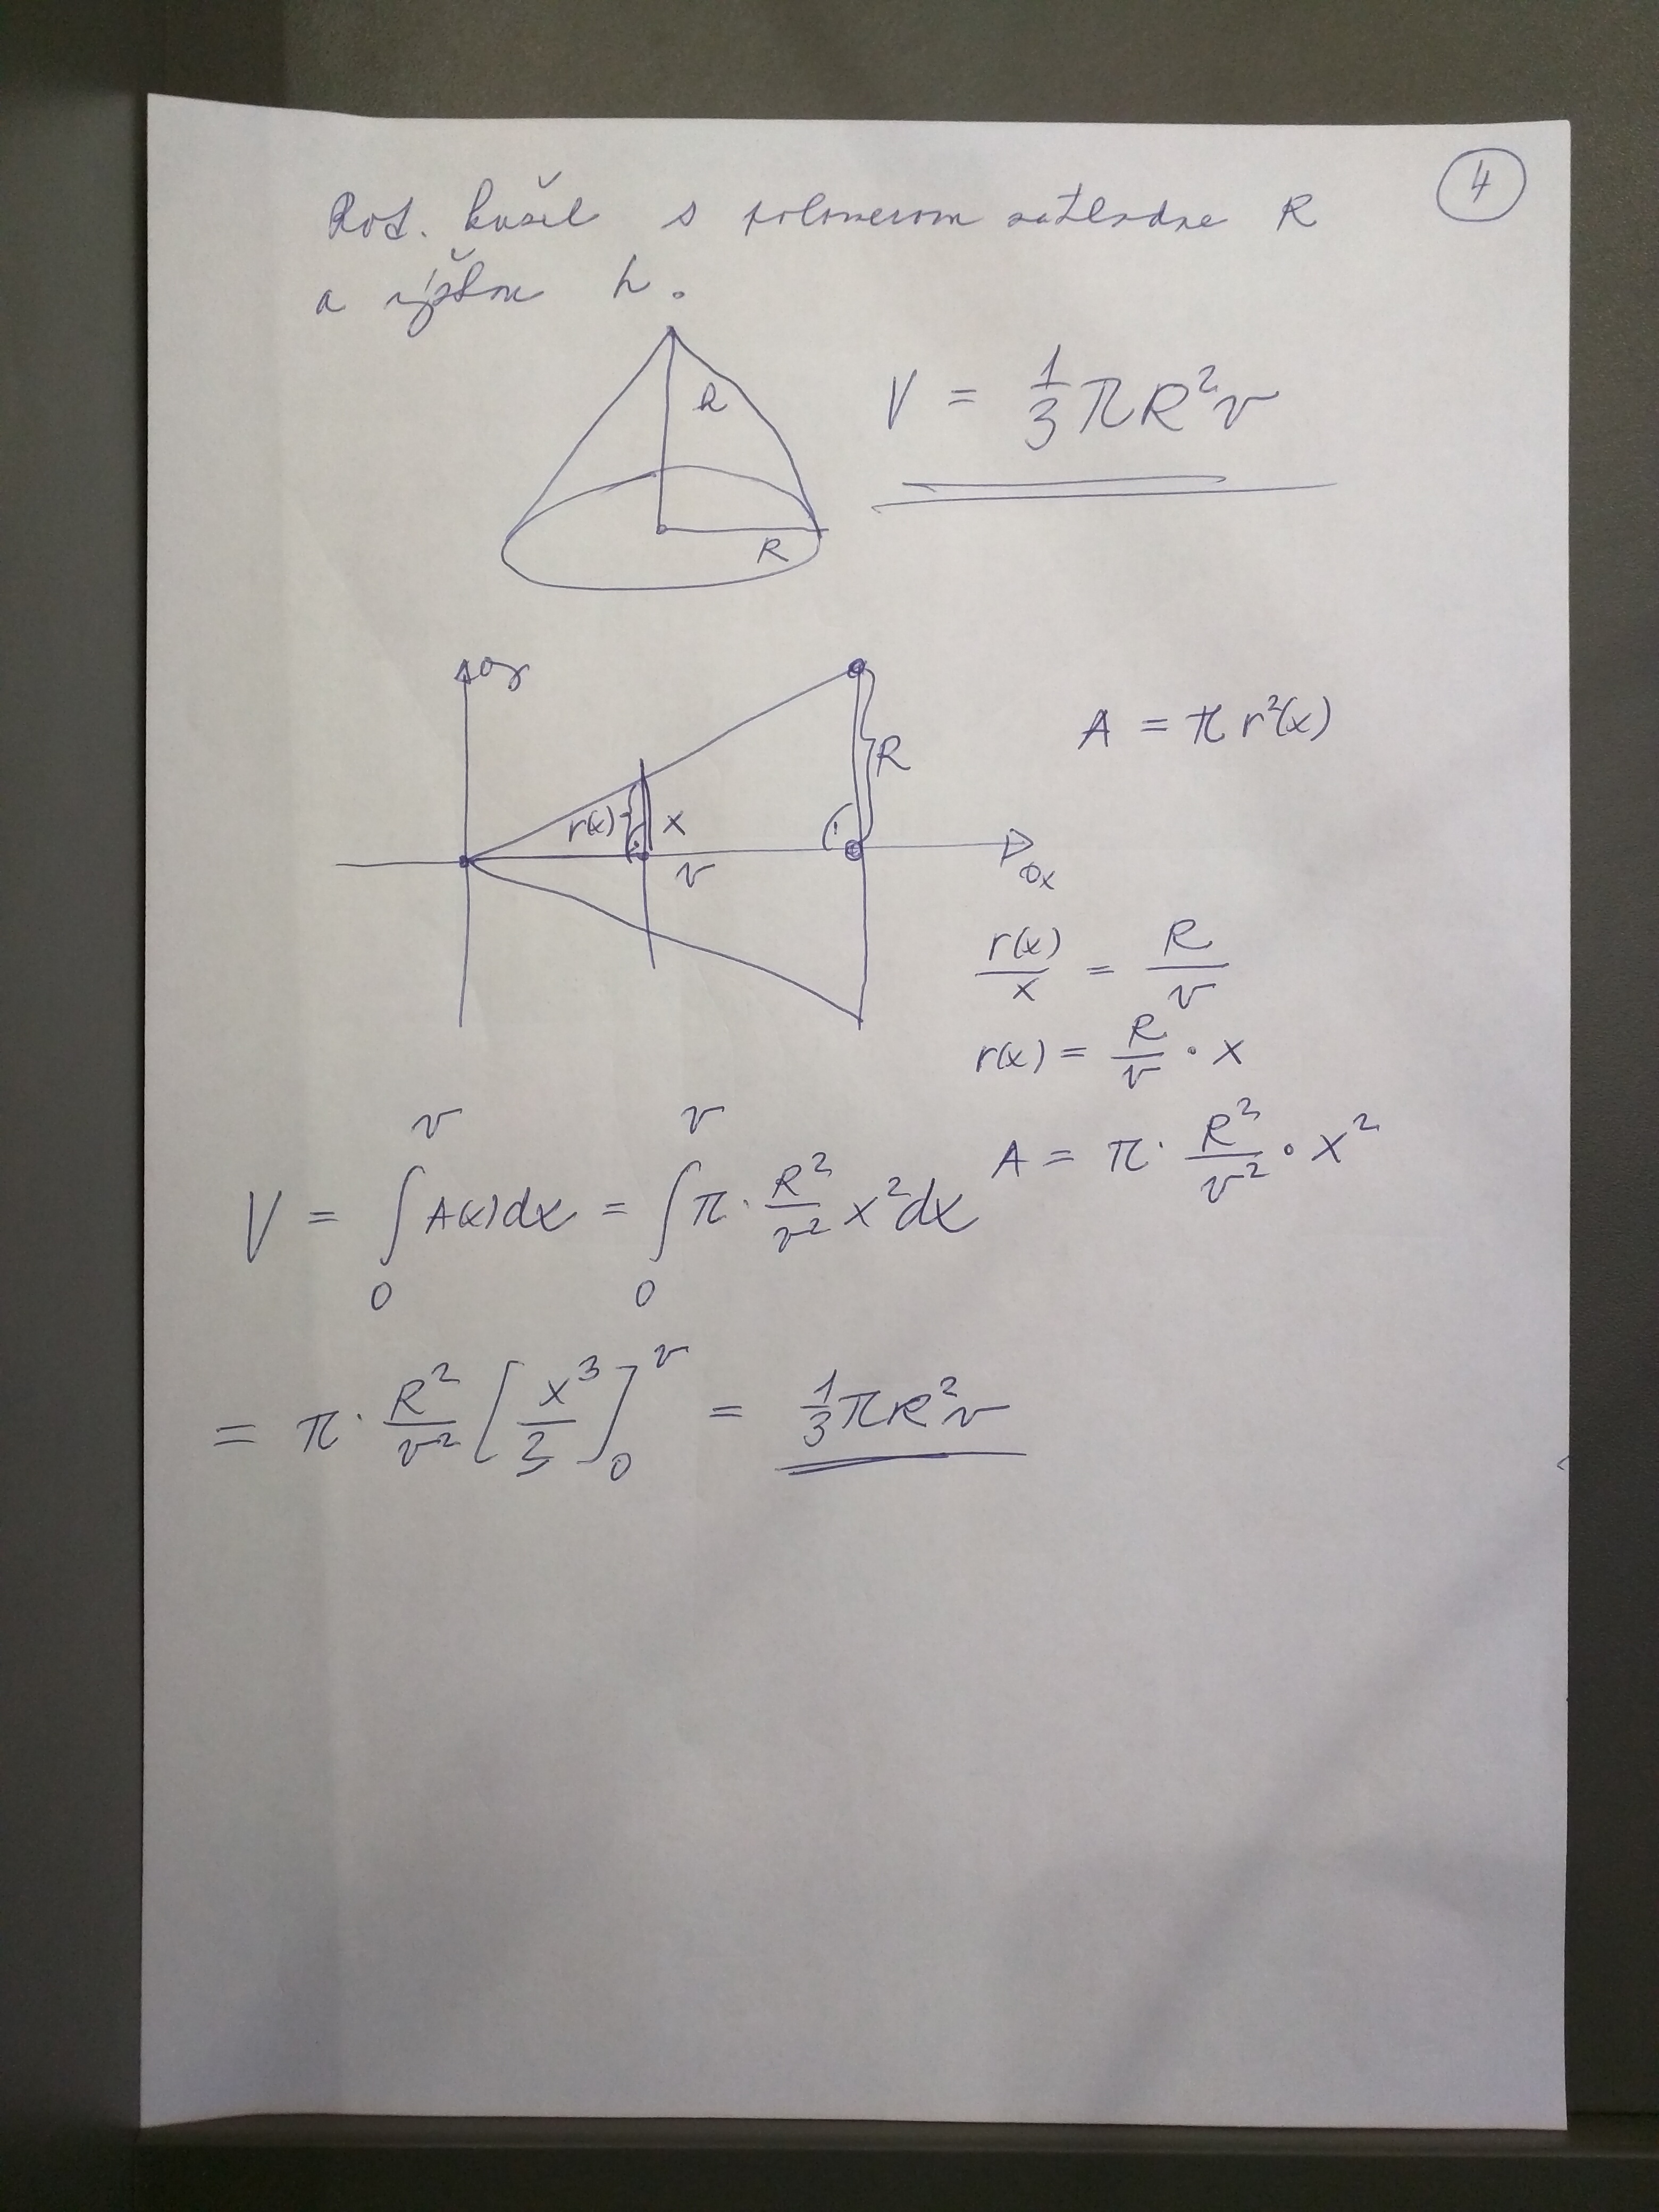 4
Rot. kužel s polomerom základne R
a výškou h.
R
V = 1/3 πR²v
R
oy
A = π r²(x)
R
r(x) x
v
ox
r(x)/x = R/v
r(x) = R/v · x
A = π · R²/v² · x²
V = ∫₀ᵛ A(x)dx = ∫₀ᵛ π · R²/v² x²dx
= π · R²/v² [x³/3]₀ᵛ = 1/3 πR²v